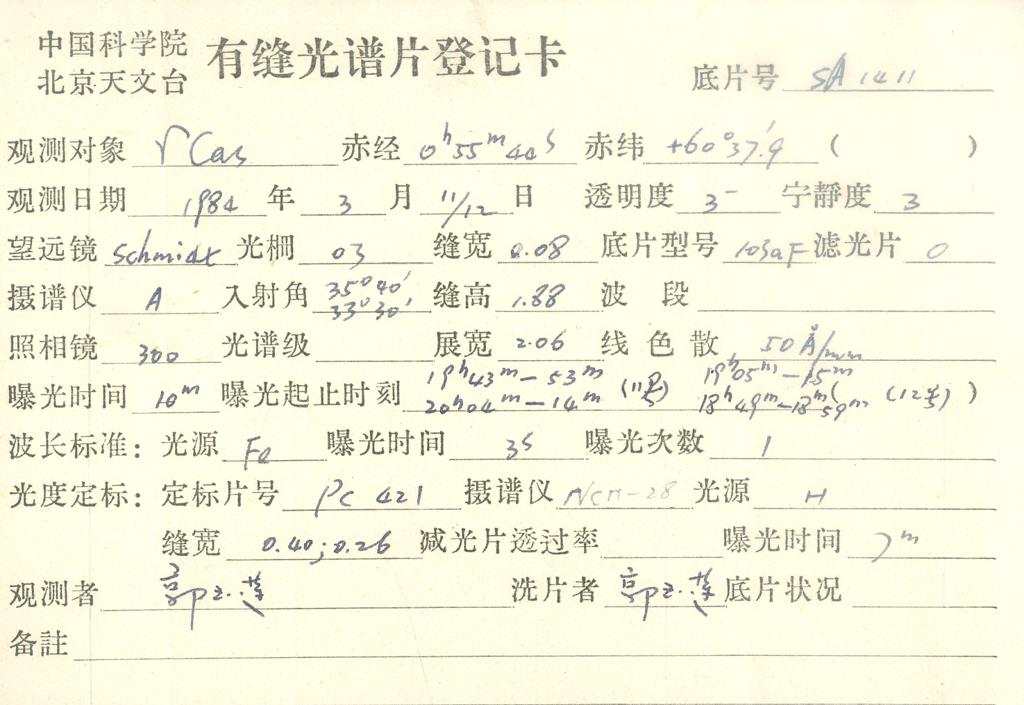 中国科学院
北京天文台
有缝光谱片登记卡
底片号 SA 1411
观测对象 γ Cas 赤经 0ʰ55ᵐ44ˢ 赤纬 +60°37′.9 ( )
观测日期 1984 年 3 月 11/12 日 透明度 3⁻ 宁静度 3
望远镜 Schmidt 光栅 03 缝宽 0.08 底片型号 103aF 滤光片 0
摄谱仪 A 入射角 35°40′ 33°30′ 缝高 1.88 波段
照相镜 300 光谱级 展宽 2.06 线色散 50 Å/mm
曝光时间 10ᵐ 曝光起止时刻 19ʰ43ᵐ—53ᵐ 20ʰ04ᵐ—14ᵐ (11号) 19ʰ05ᵐ—15ᵐ 18ʰ49ᵐ—18ʰ59ᵐ (12号) ( )
波长标准: 光源 Fe 曝光时间 3ˢ 曝光次数 1
光度定标: 定标片号 PC 421 摄谱仪 光源 H
缝宽 0.40; 0.26 减光片透过率 曝光时间 7ᵐ
观测者 郭玉莲 洗片者 郭玉莲 底片状况
备註